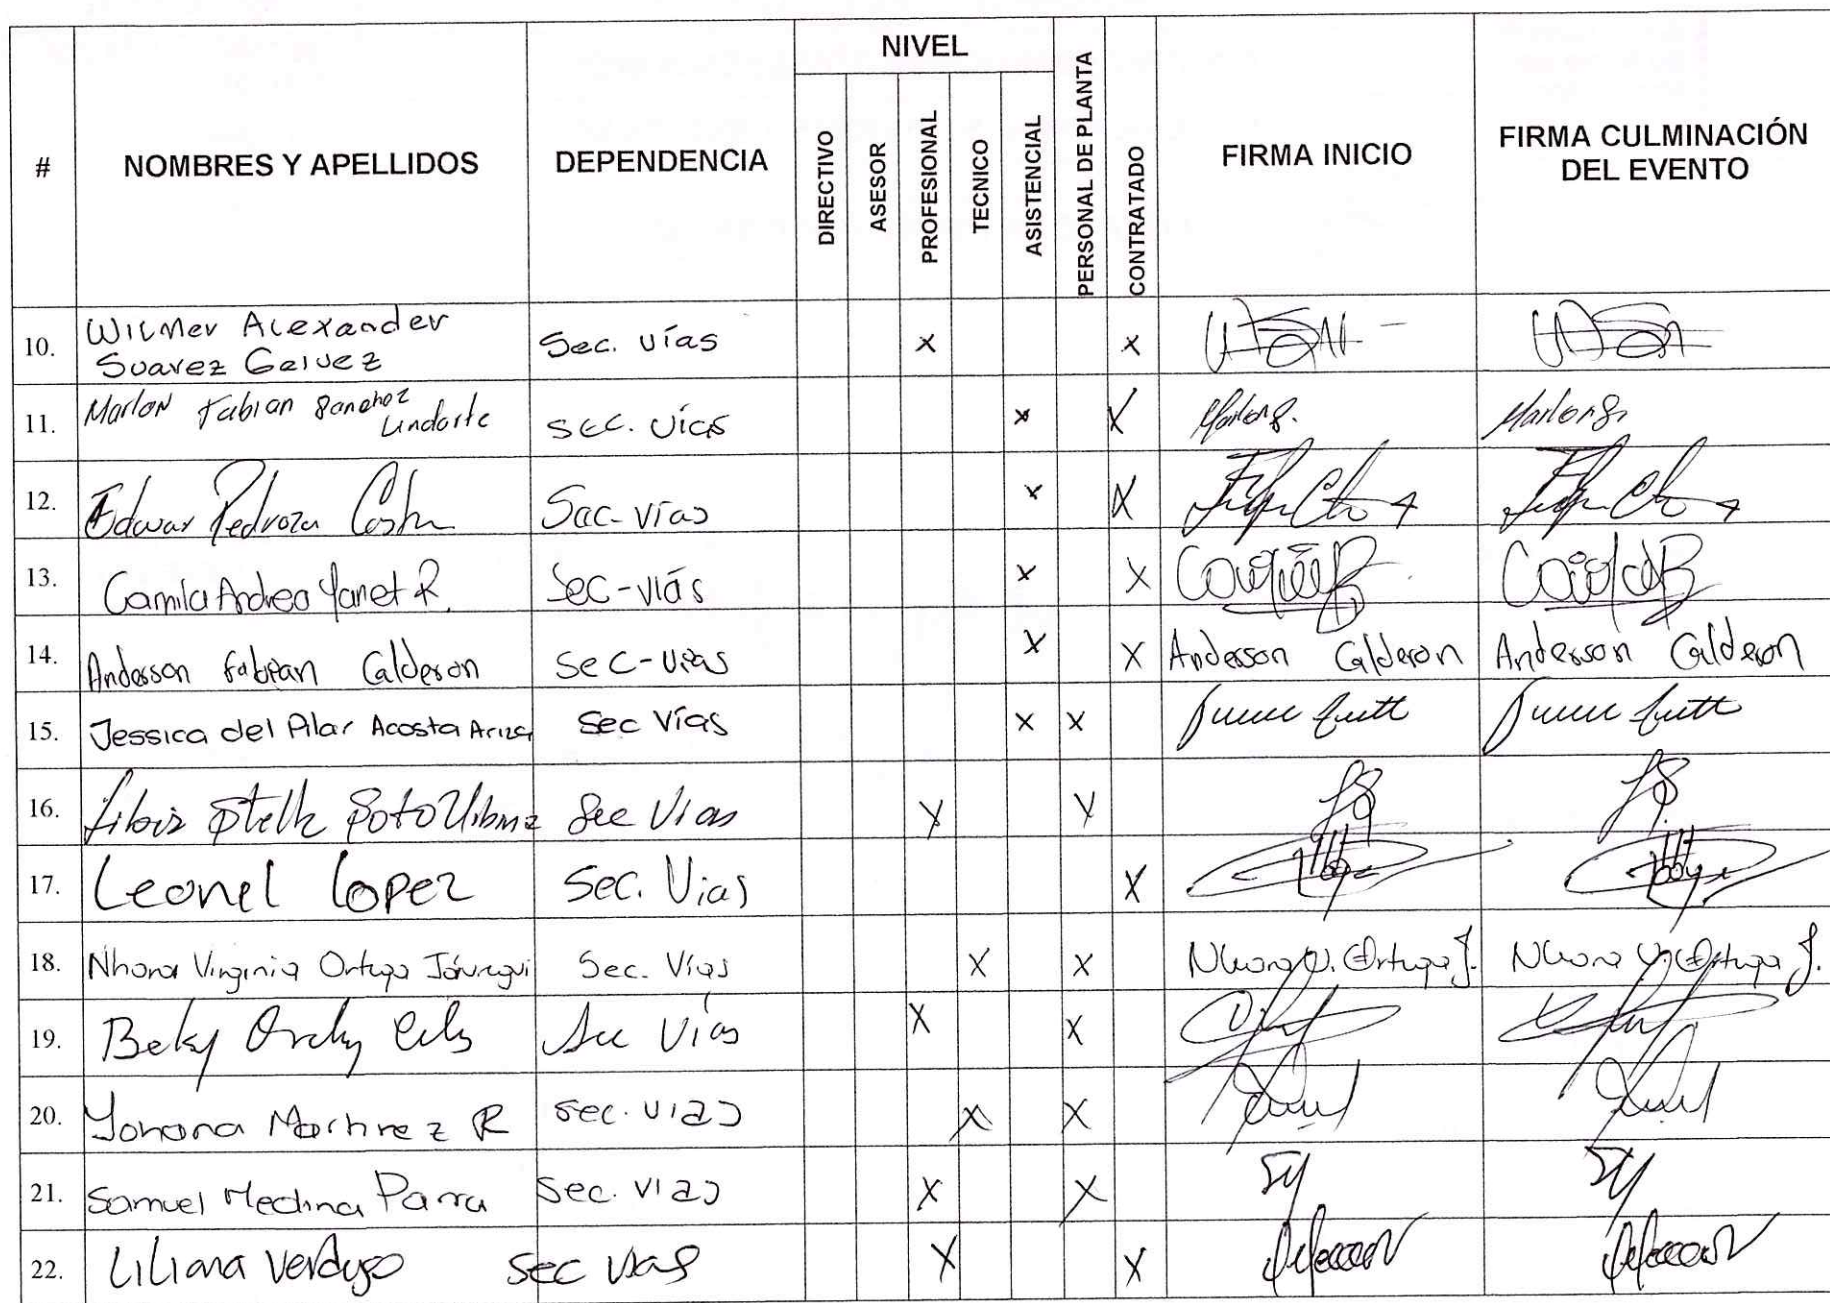 NIVEL
# NOMBRES Y APELLIDOS DEPENDENCIA DIRECTIVO ASESOR PROFESIONAL TECNICO ASISTENCIAL PERSONAL DE PLANTA CONTRATADO FIRMA INICIO FIRMA CULMINACIÓN
DEL EVENTO
10. Wilmer Alexander
Suarez Gelvez Sec. vías x x
11. Marlon Fabian Sanchez
Lindarte sec. vías x X Marlon S. Marlon S.
12. Edwar Pedroza Sec-vías x X
13. Camila Andrea Yanet R. Sec-viás x X
14. Anderson fabian Calderon sec-vias X X Anderson Calderon Anderson Calderon
15. Jessica del Pilar Acosta Ariza Sec Vías X X
16. Soto Sec Vias X X
17. Leonel Lopez Sec. Vias X
18. Nhora Virginia Ortega Jáuregui Sec. Vías X X Nhora V. Ortega J. Nhora V. Ortega J.
19. Beky Sec Vías X X
20. Yohana Martinez R sec. vias X X
21. Samuel Medina Parra Sec. vias X X
22. Liliana Verdugo Sec vias X X